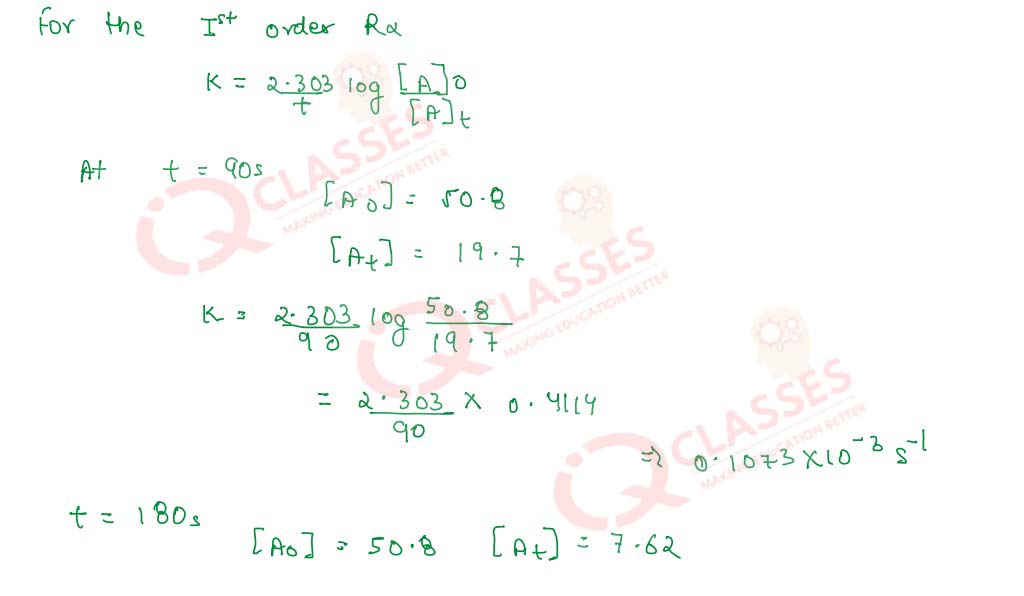 For the Ist order Rx
K = 2.303/t log [A]0/[A]t
At t = 90s
[A0] = 50.8
[At] = 19.7
K = 2.303/90 log 50.8/19.7
= 2.303/90 × 0.4114
⇒ 0.1073 × 10^-3 s^-1
t = 180s
[A0] = 50.8 [At] = 7.62
IQ CLASSES
MAKING EDUCATION BETTER
IQ CLASSES
MAKING EDUCATION BETTER
IQ CLASSES
MAKING EDUCATION BETTER